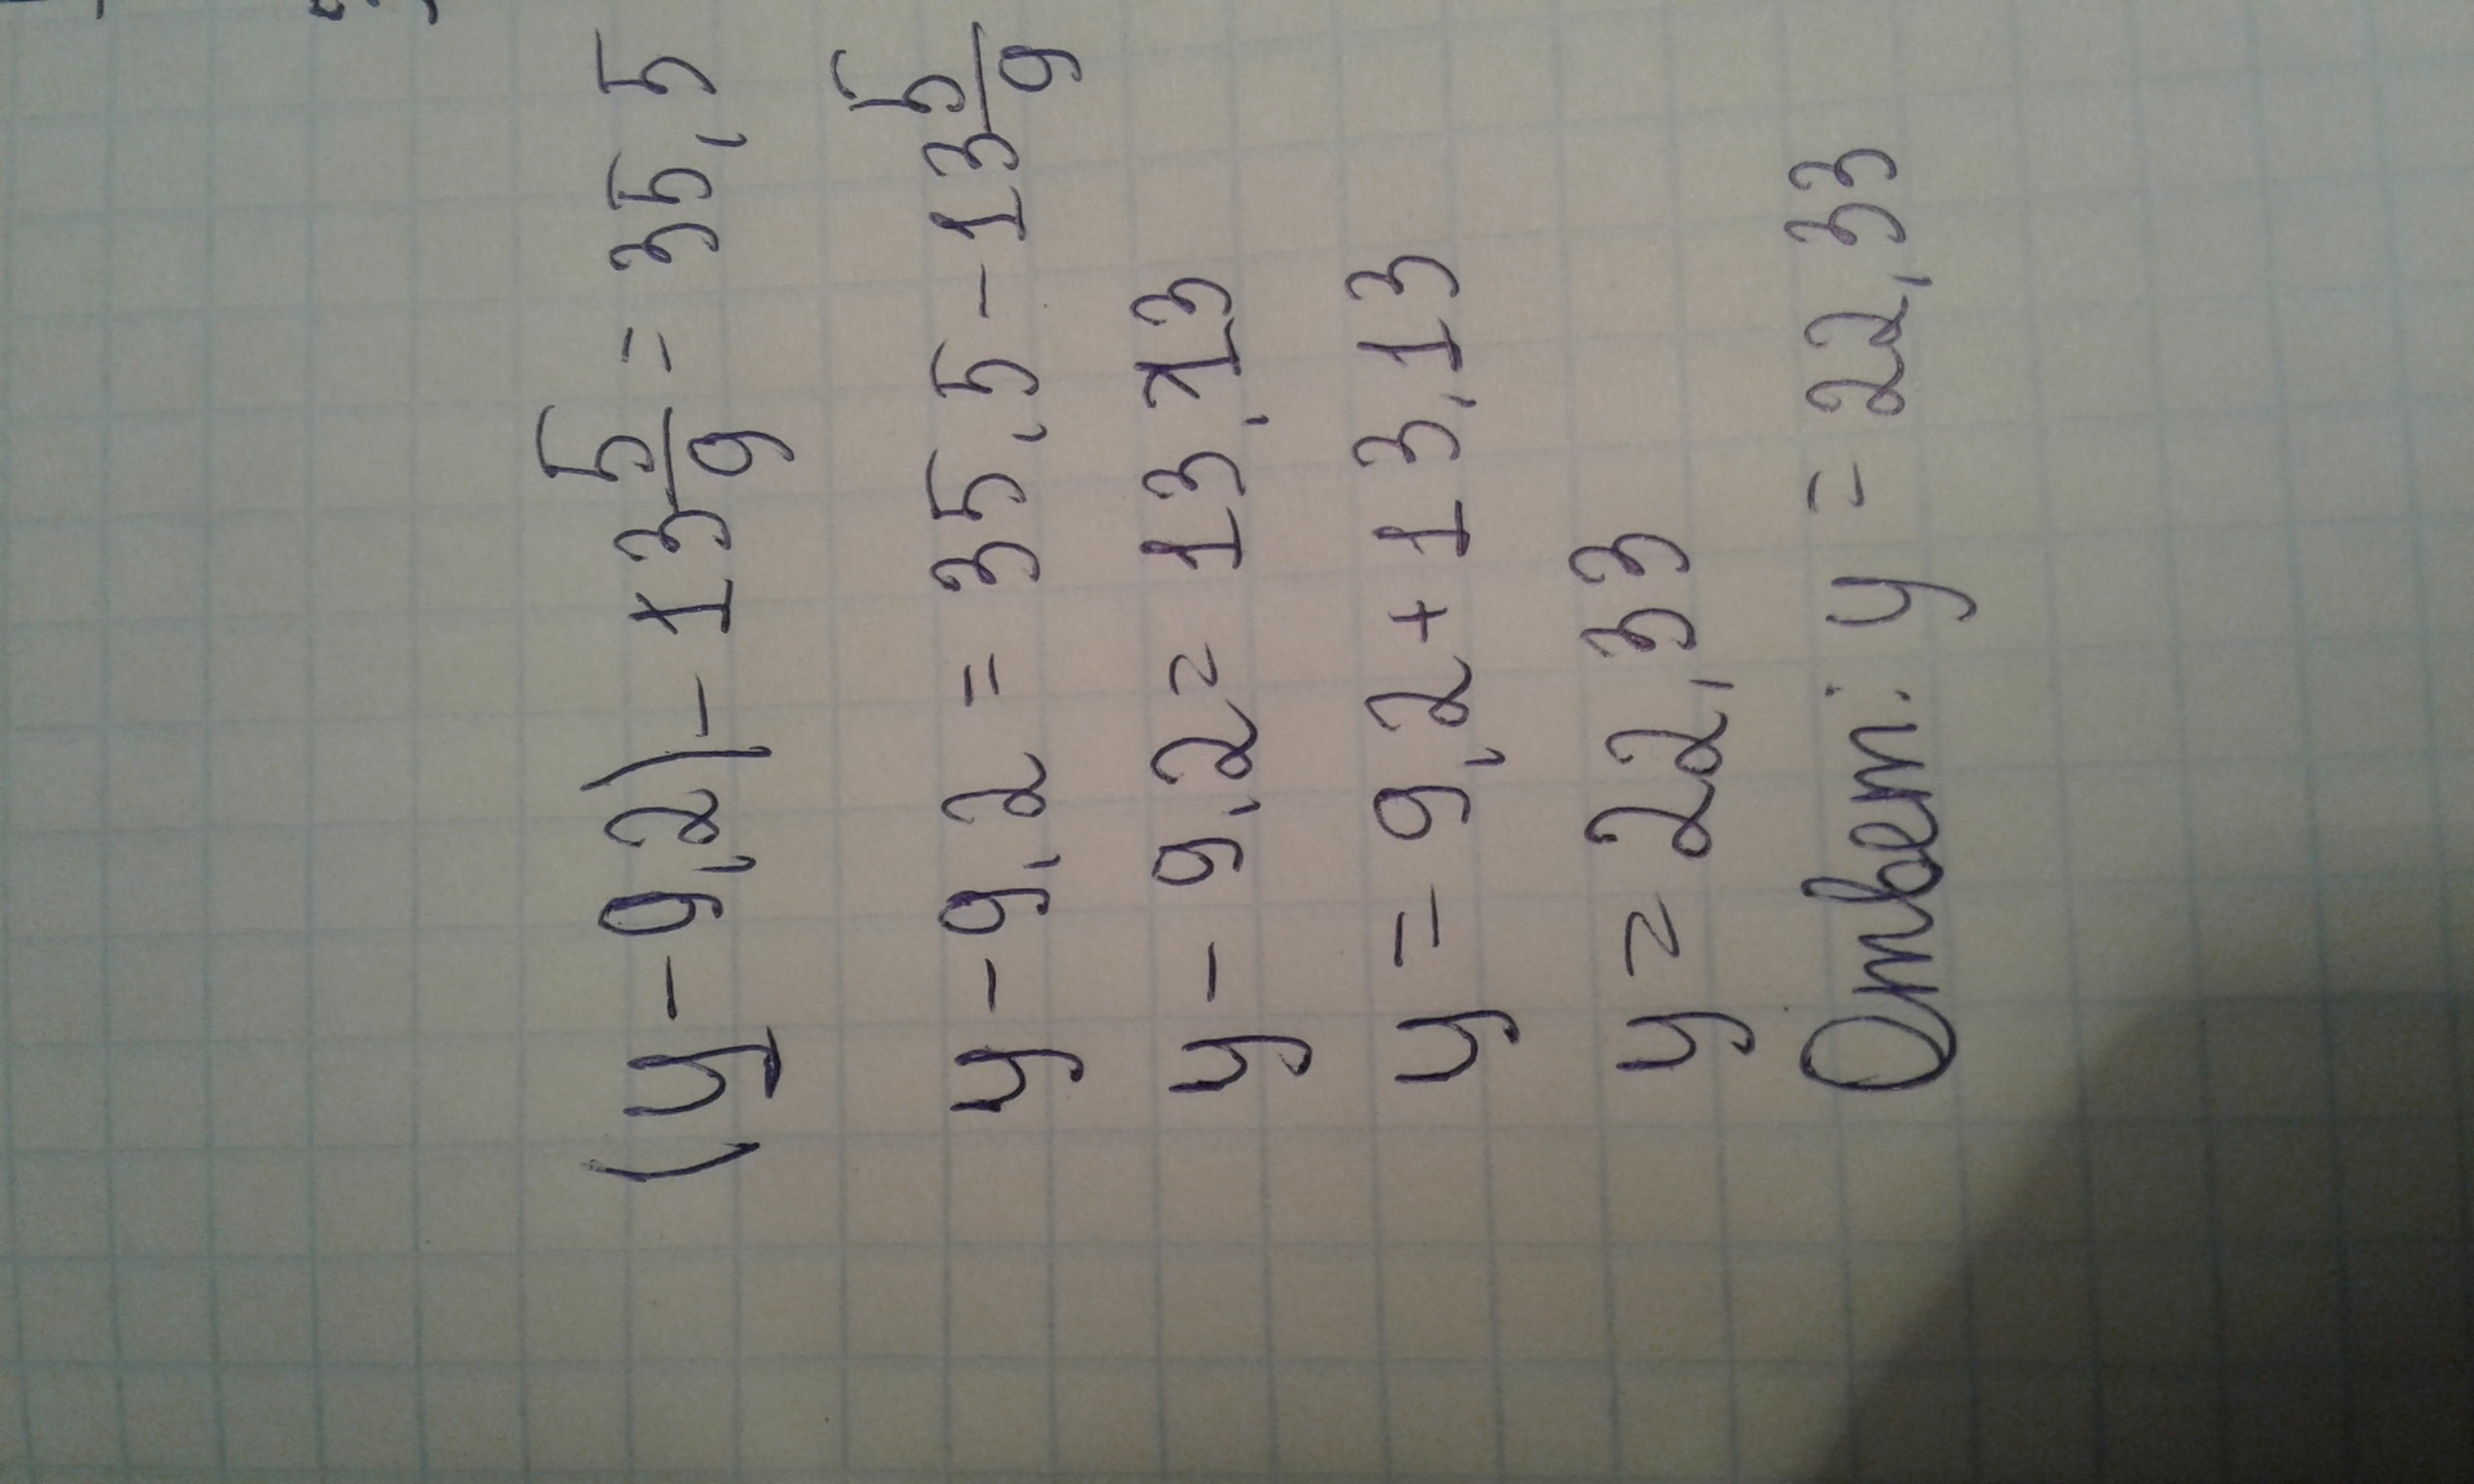 (y-9,2)-13 5/9=35,5
y-9,2=35,5-13 5/9
y-9,2=13,13
y=9,2+13,13
y=22,33
Ответ: y=22,33